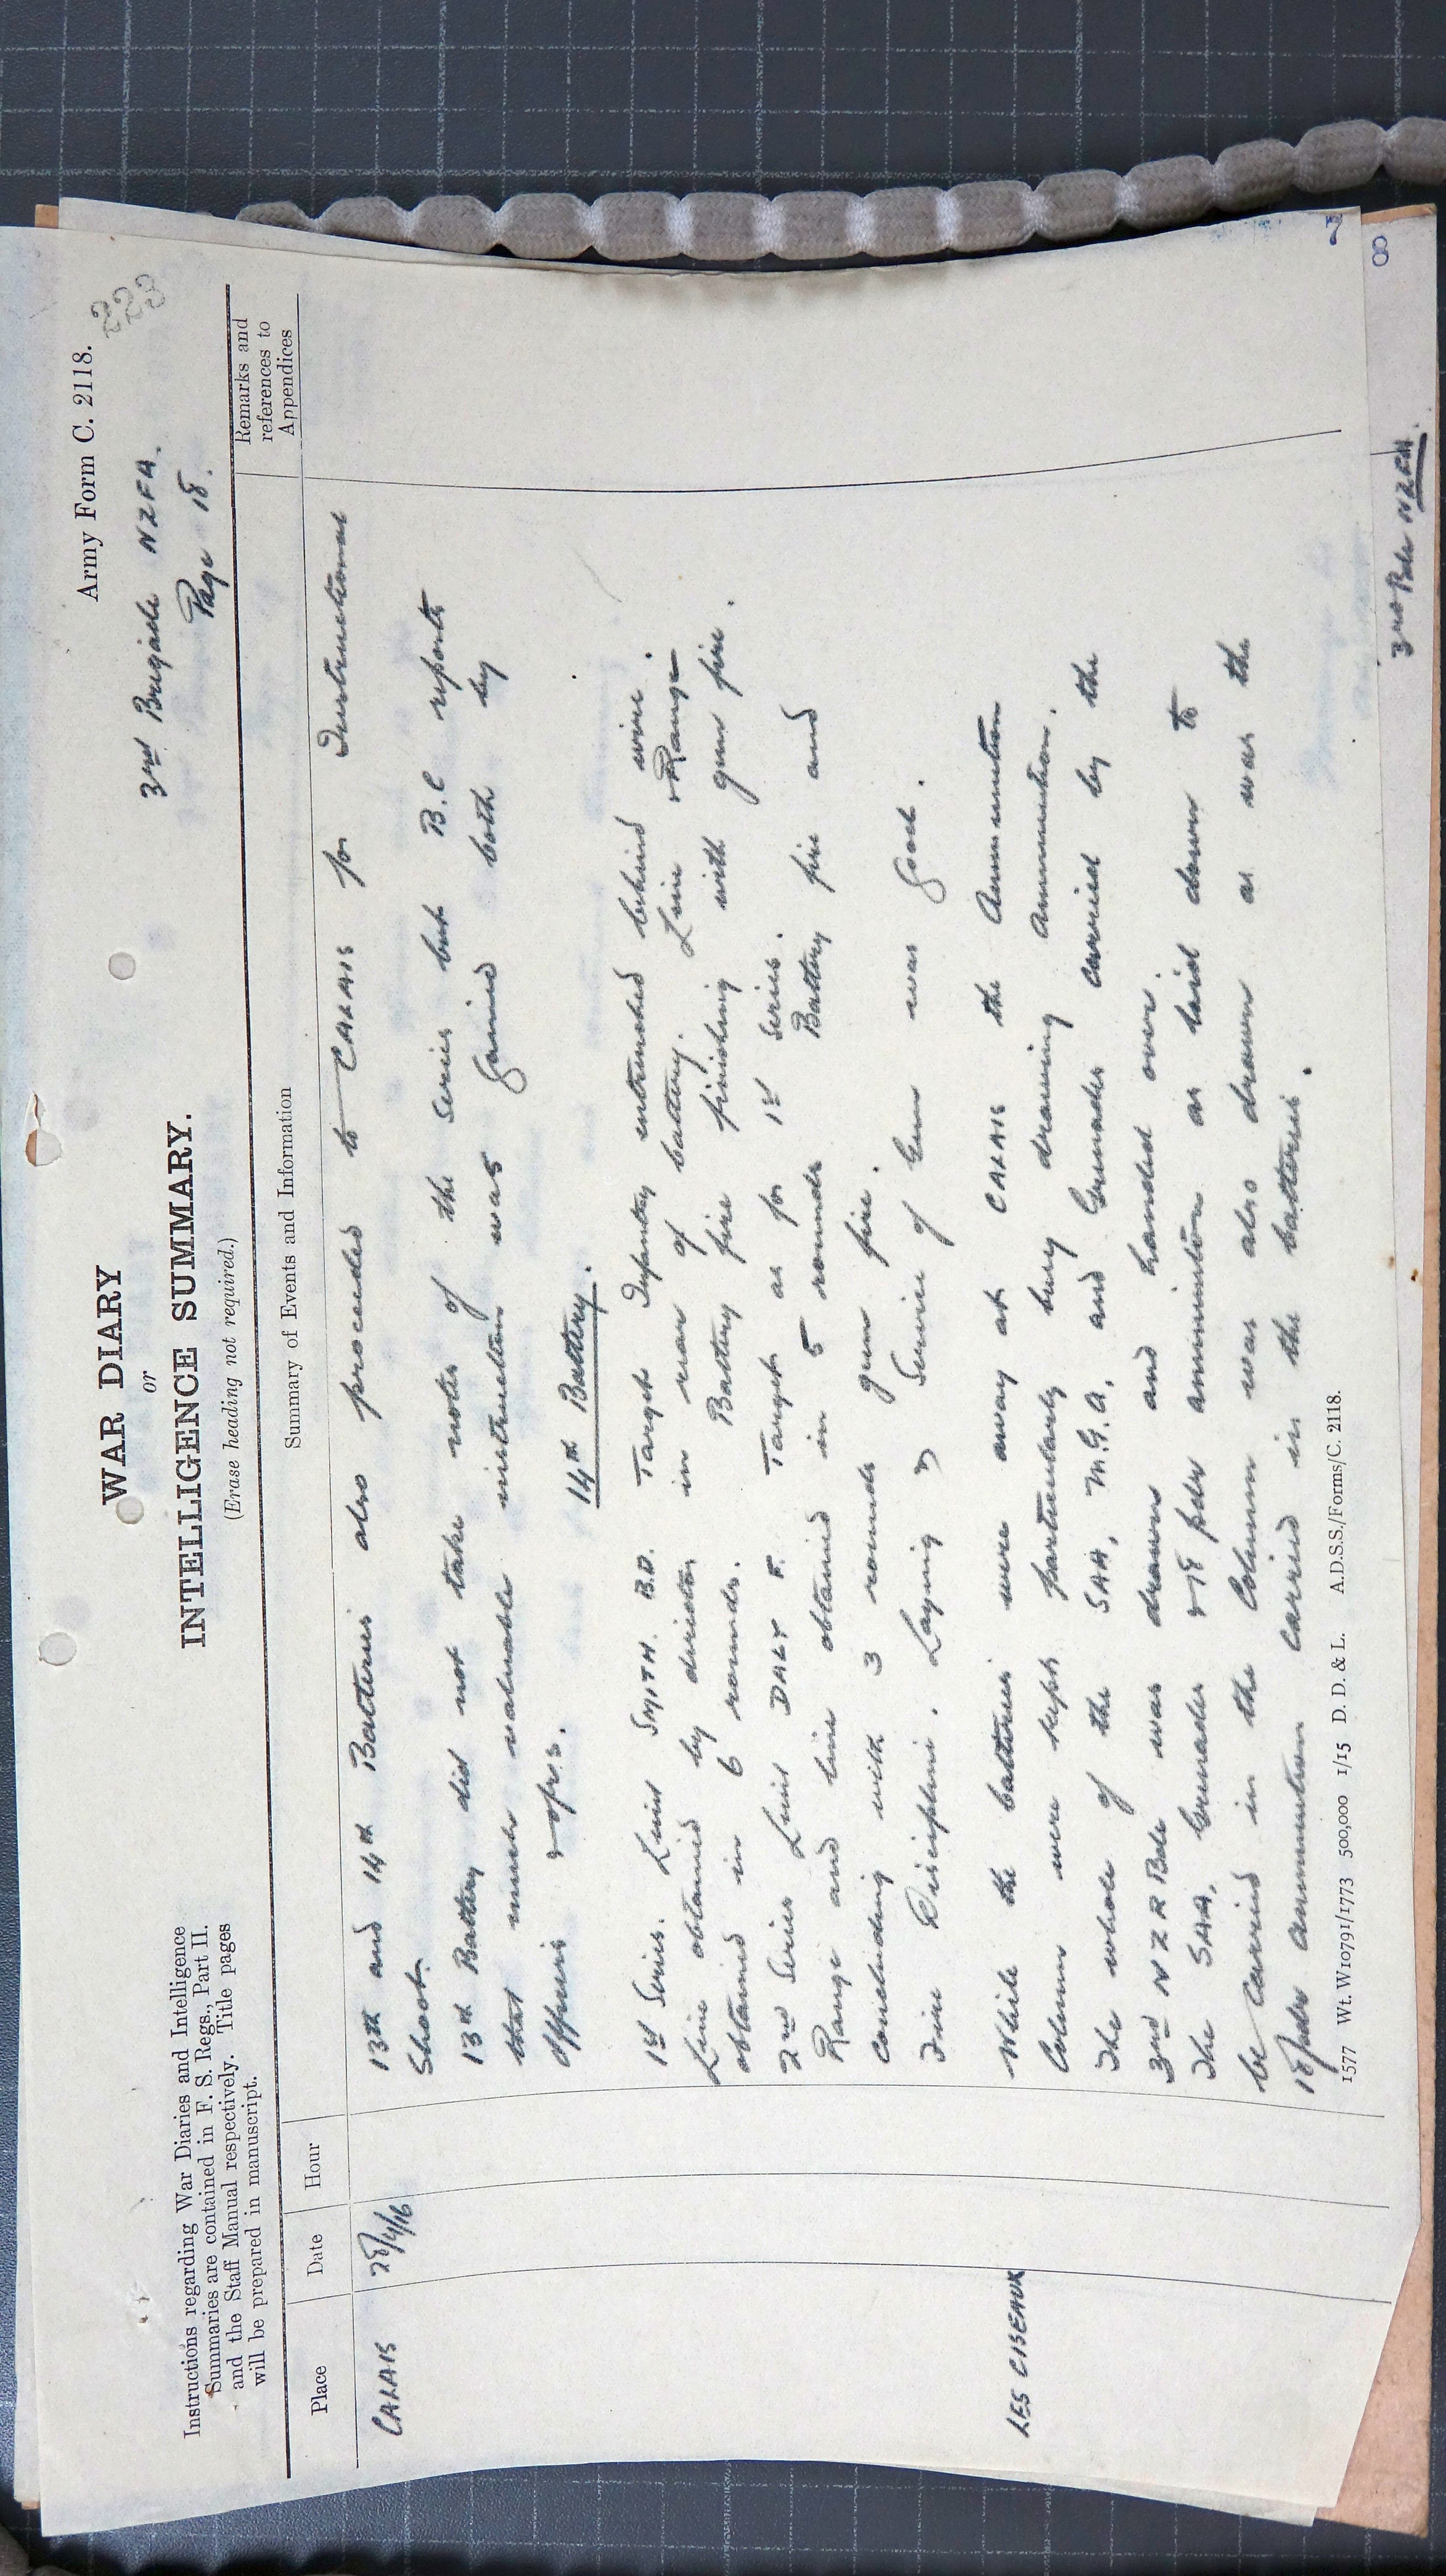 Army Form C. 2118.
223
WAR DIARY
or
INTELLIGENCE SUMMARY.
(Erase heading not required.)
3rd Brigade NZFA.
Page 18.
Instructions regarding War Diaries and Intelligence
Summaries are contained in F. S. Regs., Part II.
and the Staff Manual respectively. Title pages
will be prepared in manuscript.
Place Date Hour Summary of Events and Information Remarks and references to Appendices
CALAIS 28/4/16 13th and 14th Batteries also proceeded to CALAIS for Instructional
Shoot.
13th Battery did not take notes of the series but B.C reports
that much valuable instruction was gained both by
officers & oprs.
14th Battery.
1st Series. Lieut SMITH. B.D. Target Infantry entrenched behind wire.
Line obtained by direction in rear of battery. Line & Range
obtained in 6 rounds. Battery fire finishing with gun fire.
2nd Series Lieut DALY F. Target as for 1st Series.
Range and line obtained in 5 rounds Battery fire and
concluding with 3 rounds gun fire.
Fire Discipline. Laying & Service of Guns was good.
LES CISEAUX While the batteries were away at CALAIS the Ammunition
Column were kept particularly busy drawing ammunition.
The whole of the SAA, M.G.A, and Grenades carried by the
3rd N Z R Bde was drawn and handed over.
The SAA, Grenades & 18 pdr ammunition as laid down to
be carried in the Column was also drawn as was the
18pdr ammunition carried in the batteries.
1577 Wt. W10791/1773 500,000 1/15 D. D. & L. A.D.S.S./Forms/C. 2118.
7
8
3rd Bde NZFA.